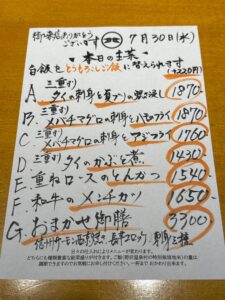 御来店ありがとう
ございます
7月30日(水)
本日の主菜
白飯をとうもろこしご飯に替えられます
(+220円)
三重
A. タイの刺身と夏ブリの照り流し 1870-
三重
B. メバチマグロの刺身とハモのフライ 1870-
三重
C. メバチマグロの刺身とアジフライ 1760-
D. 三重 タイのかぶと煮 1430-
E. 重ねロースのとんかつ 1540-
F. 和牛のメンチカツ 1650-
G. おまかせ御膳 3300-
信州サーモン 刺身三種
日々の仕入れによりメニューが変わります。